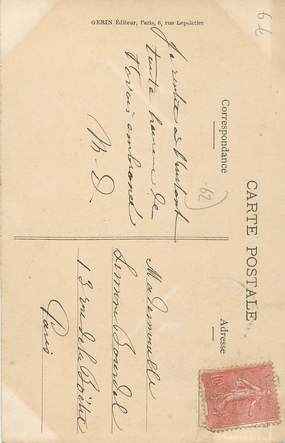 CARTE POSTALE
Correspondance
Adresse
Je rentre à l'instant
toute heureuse de
t'avoir embrassé
M-D.
Mademoiselle
Simone Bourdel
13 rue de la Boëtie
Paris
GERIN Éditeur, Paris, 6, rue Lepeletier
62
6 €